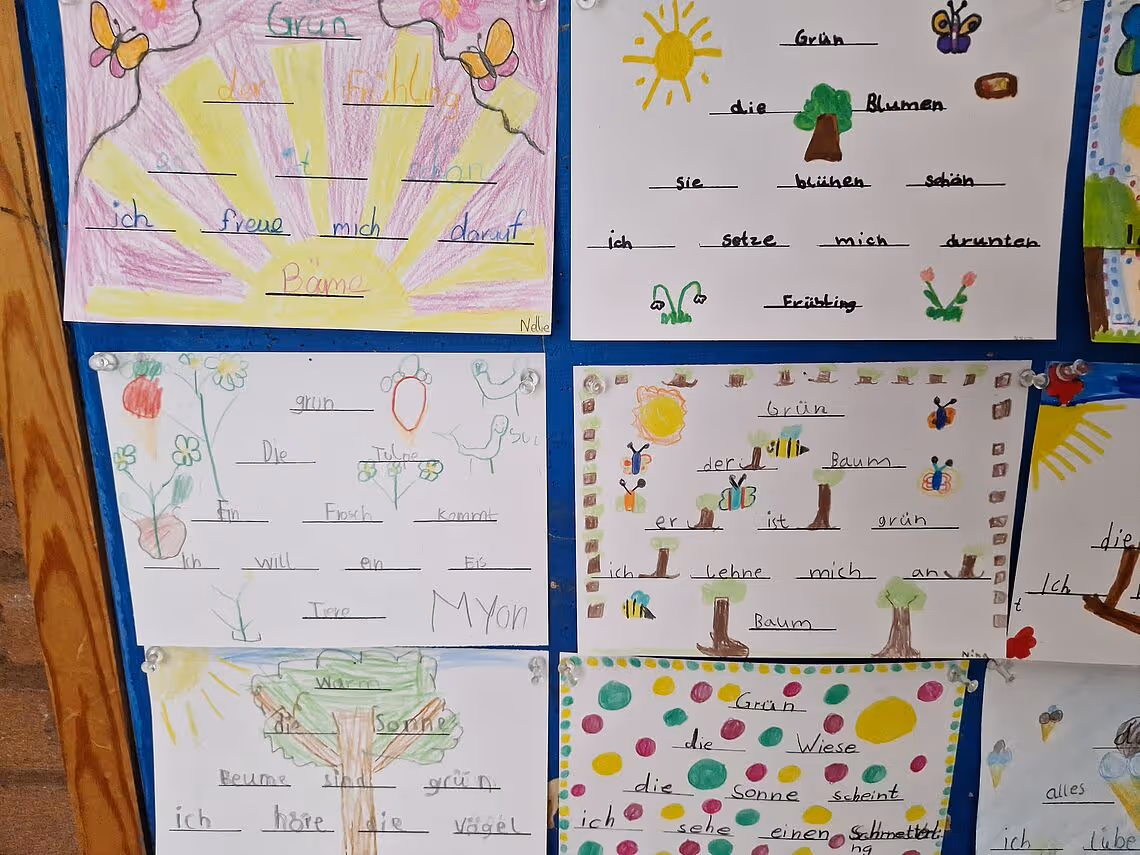 Grün
der Frühling
er ist schön
ich freue mich darauf
Bäme
Nellie
Grün
die Blumen
sie blühen schön
ich setze mich drunten
Frühling
grün
Die Tulpe
Ein Frosch kommt
Ich will ein Eis
Tiere
MYon
Grün
der Baum
er ist grün
ich lehne mich an
Baum
Nina
die
Ich
t
warm
die Sonne
Beume sind grün
ich höre die Vögel
Grün
die Wiese
die Sonne scheint
ich sehe einen Schmetterli
ng
alles
ich lübe